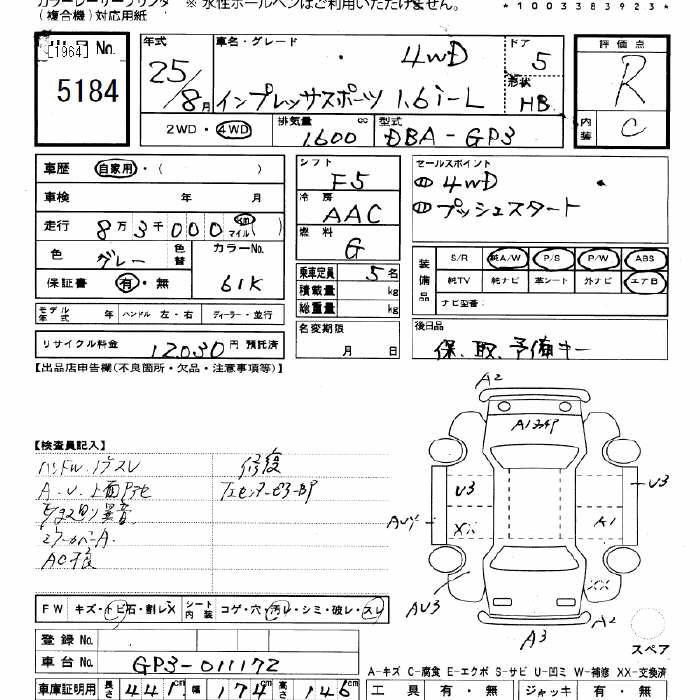 カラーレーザープリンタ
(複合機)対応用紙
※ 水性ボールペンはご利用いただけません。
*1003383923*
[1964]
No.
5184
年式
25/8月
車名・グレード
4WD
インプレッサスポーツ 1.6i-L
ドア
5
形状
HB
評価点
R
内装
C
2WD・4WD
排気量
1.600
cc
型式
DBA-GP3
車歴 自家用・( )
車検 年 月
走行 8万3千000 km マイル ( )
色 グレー 色替 カラーNo. 61K
保証書 有・無
シフト
F5
冷房
AAC
燃料
G
乗車定員 5名
積載量 kg
総重量 kg
セールスポイント
① 4WD
① プッシュスタート
装備品
S/R 純A/W P/S P/W ABS
純TV 純ナビ 革シート 外ナビ エアB
ナビ型番:
モデル年式 年 ハンドル 左・右 ディーラー・並行
リサイクル料金 12030円 預託済
名変期限
月 日
後日品
保、取、予備キー
【出品店申告欄(不良箇所・欠品・注意事項等)】
【検査員記入】
修復
A.U.
AC不良
A2
A1
U3
U3
A1
XX
AU3
A2
A3
スペア
FW キズ・トビ石・割レX シート内装 コゲ・穴・汚レ・シミ・破レ・スレ
登録 No.
車台 No. GP3-011172
車庫証明用 長さ 441cm 幅 174cm 高さ 146cm
A-キズ C-腐食 E-エクボ S-サビ U-凹ミ W-補修 XX-交換済
工具 有・無 ジャッキ 有・無